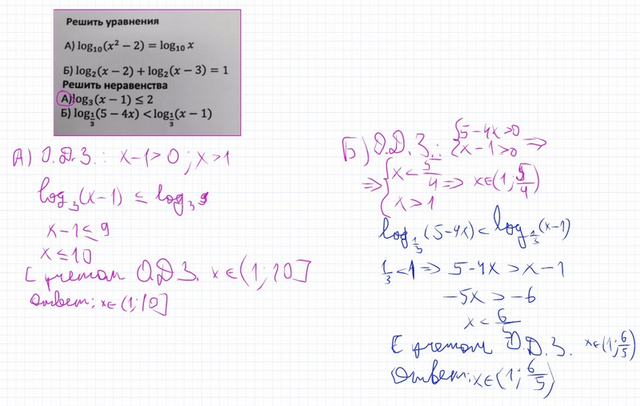 Решить уравнения
А) log₁₀(x² − 2) = log₁₀ x
Б) log₂(x − 2) + log₂(x − 3) = 1
Решить неравенства
А) log₃(x − 1) ≤ 2
Б) log_{1/3}(5 − 4x) < log_{1/3}(x − 1)
А) О.Д.З.: x−1>0; x>1
log₃(x−1) ≤ log₃9
x−1≤9
x≤10
С учетом О.Д.З. x∈(1;10]
Ответ: x∈(1;10]
Б) О.Д.З.: {5−4x>0
{x−1>0 ⇒
⇒ {x < 5/4 ⇒ x∈(1; 5/4)
{x>1
log_{1/3}(5−4x) < log_{1/3}(x−1)
1/3<1 ⇒ 5−4x > x−1
−5x > −6
x < 6/5
С учетом О.Д.З. x∈(1; 6/5)
Ответ: x∈(1; 6/5)